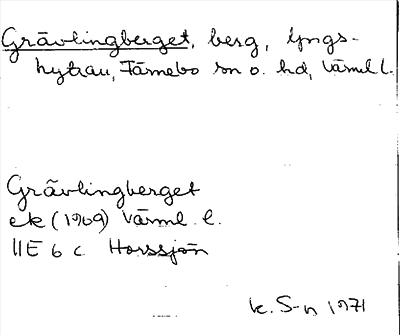 Grävlingberget, berg, Lyngs-
hyttan, Färnebo sn o. hd, Värml l.
Grävlingberget
ek (1969) Värml. l.
11E 6 c Horssjön
k. S-n 1971